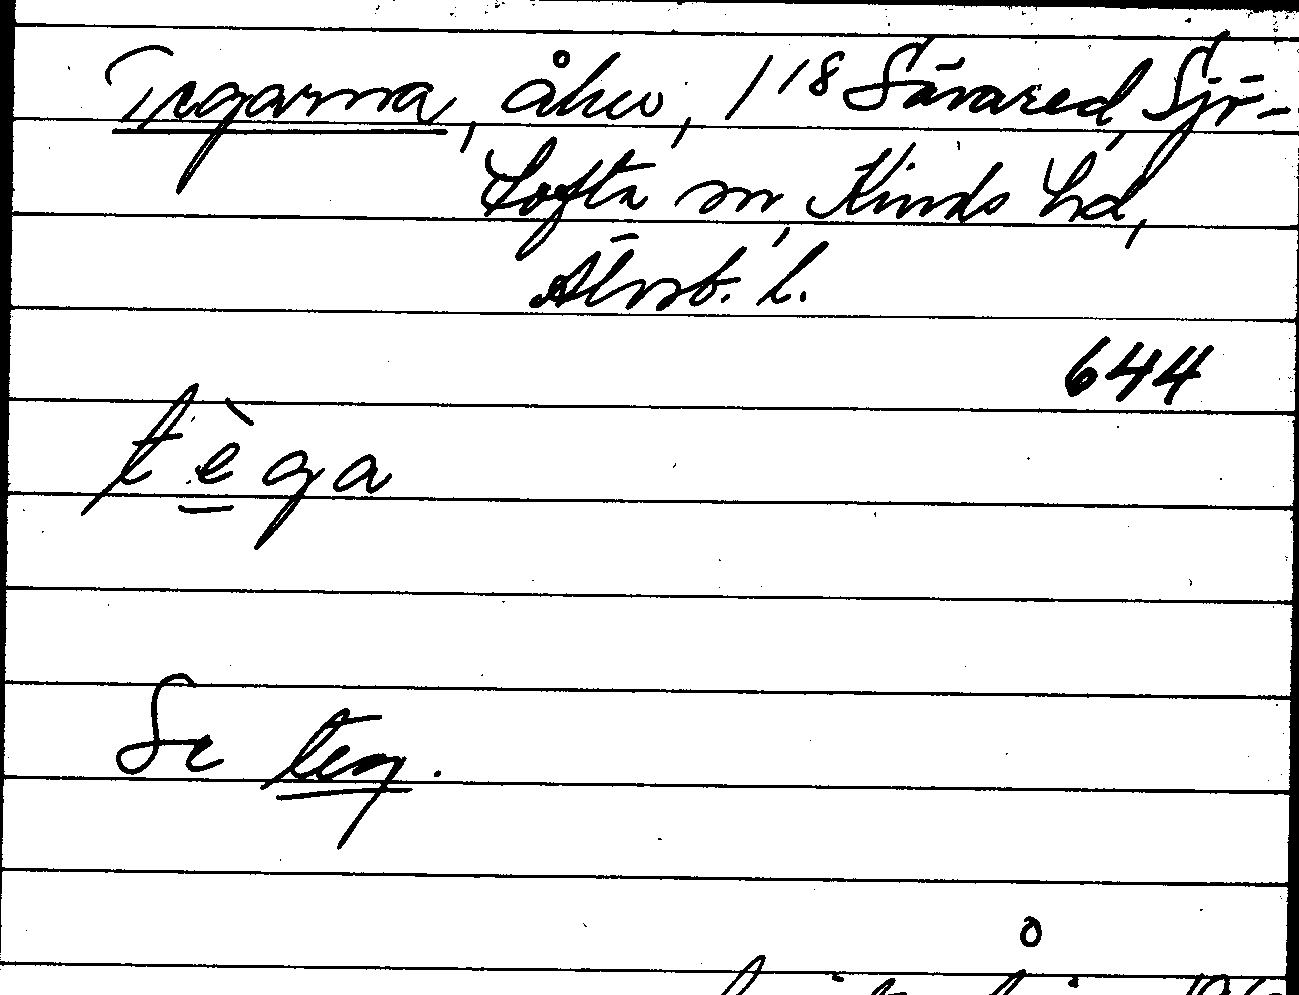 Tegarna, åker, 1/8 Sävared, Sjö-
tofta sn, Kinds hd,
Älvsb. l.
644
tèga
Se teg.